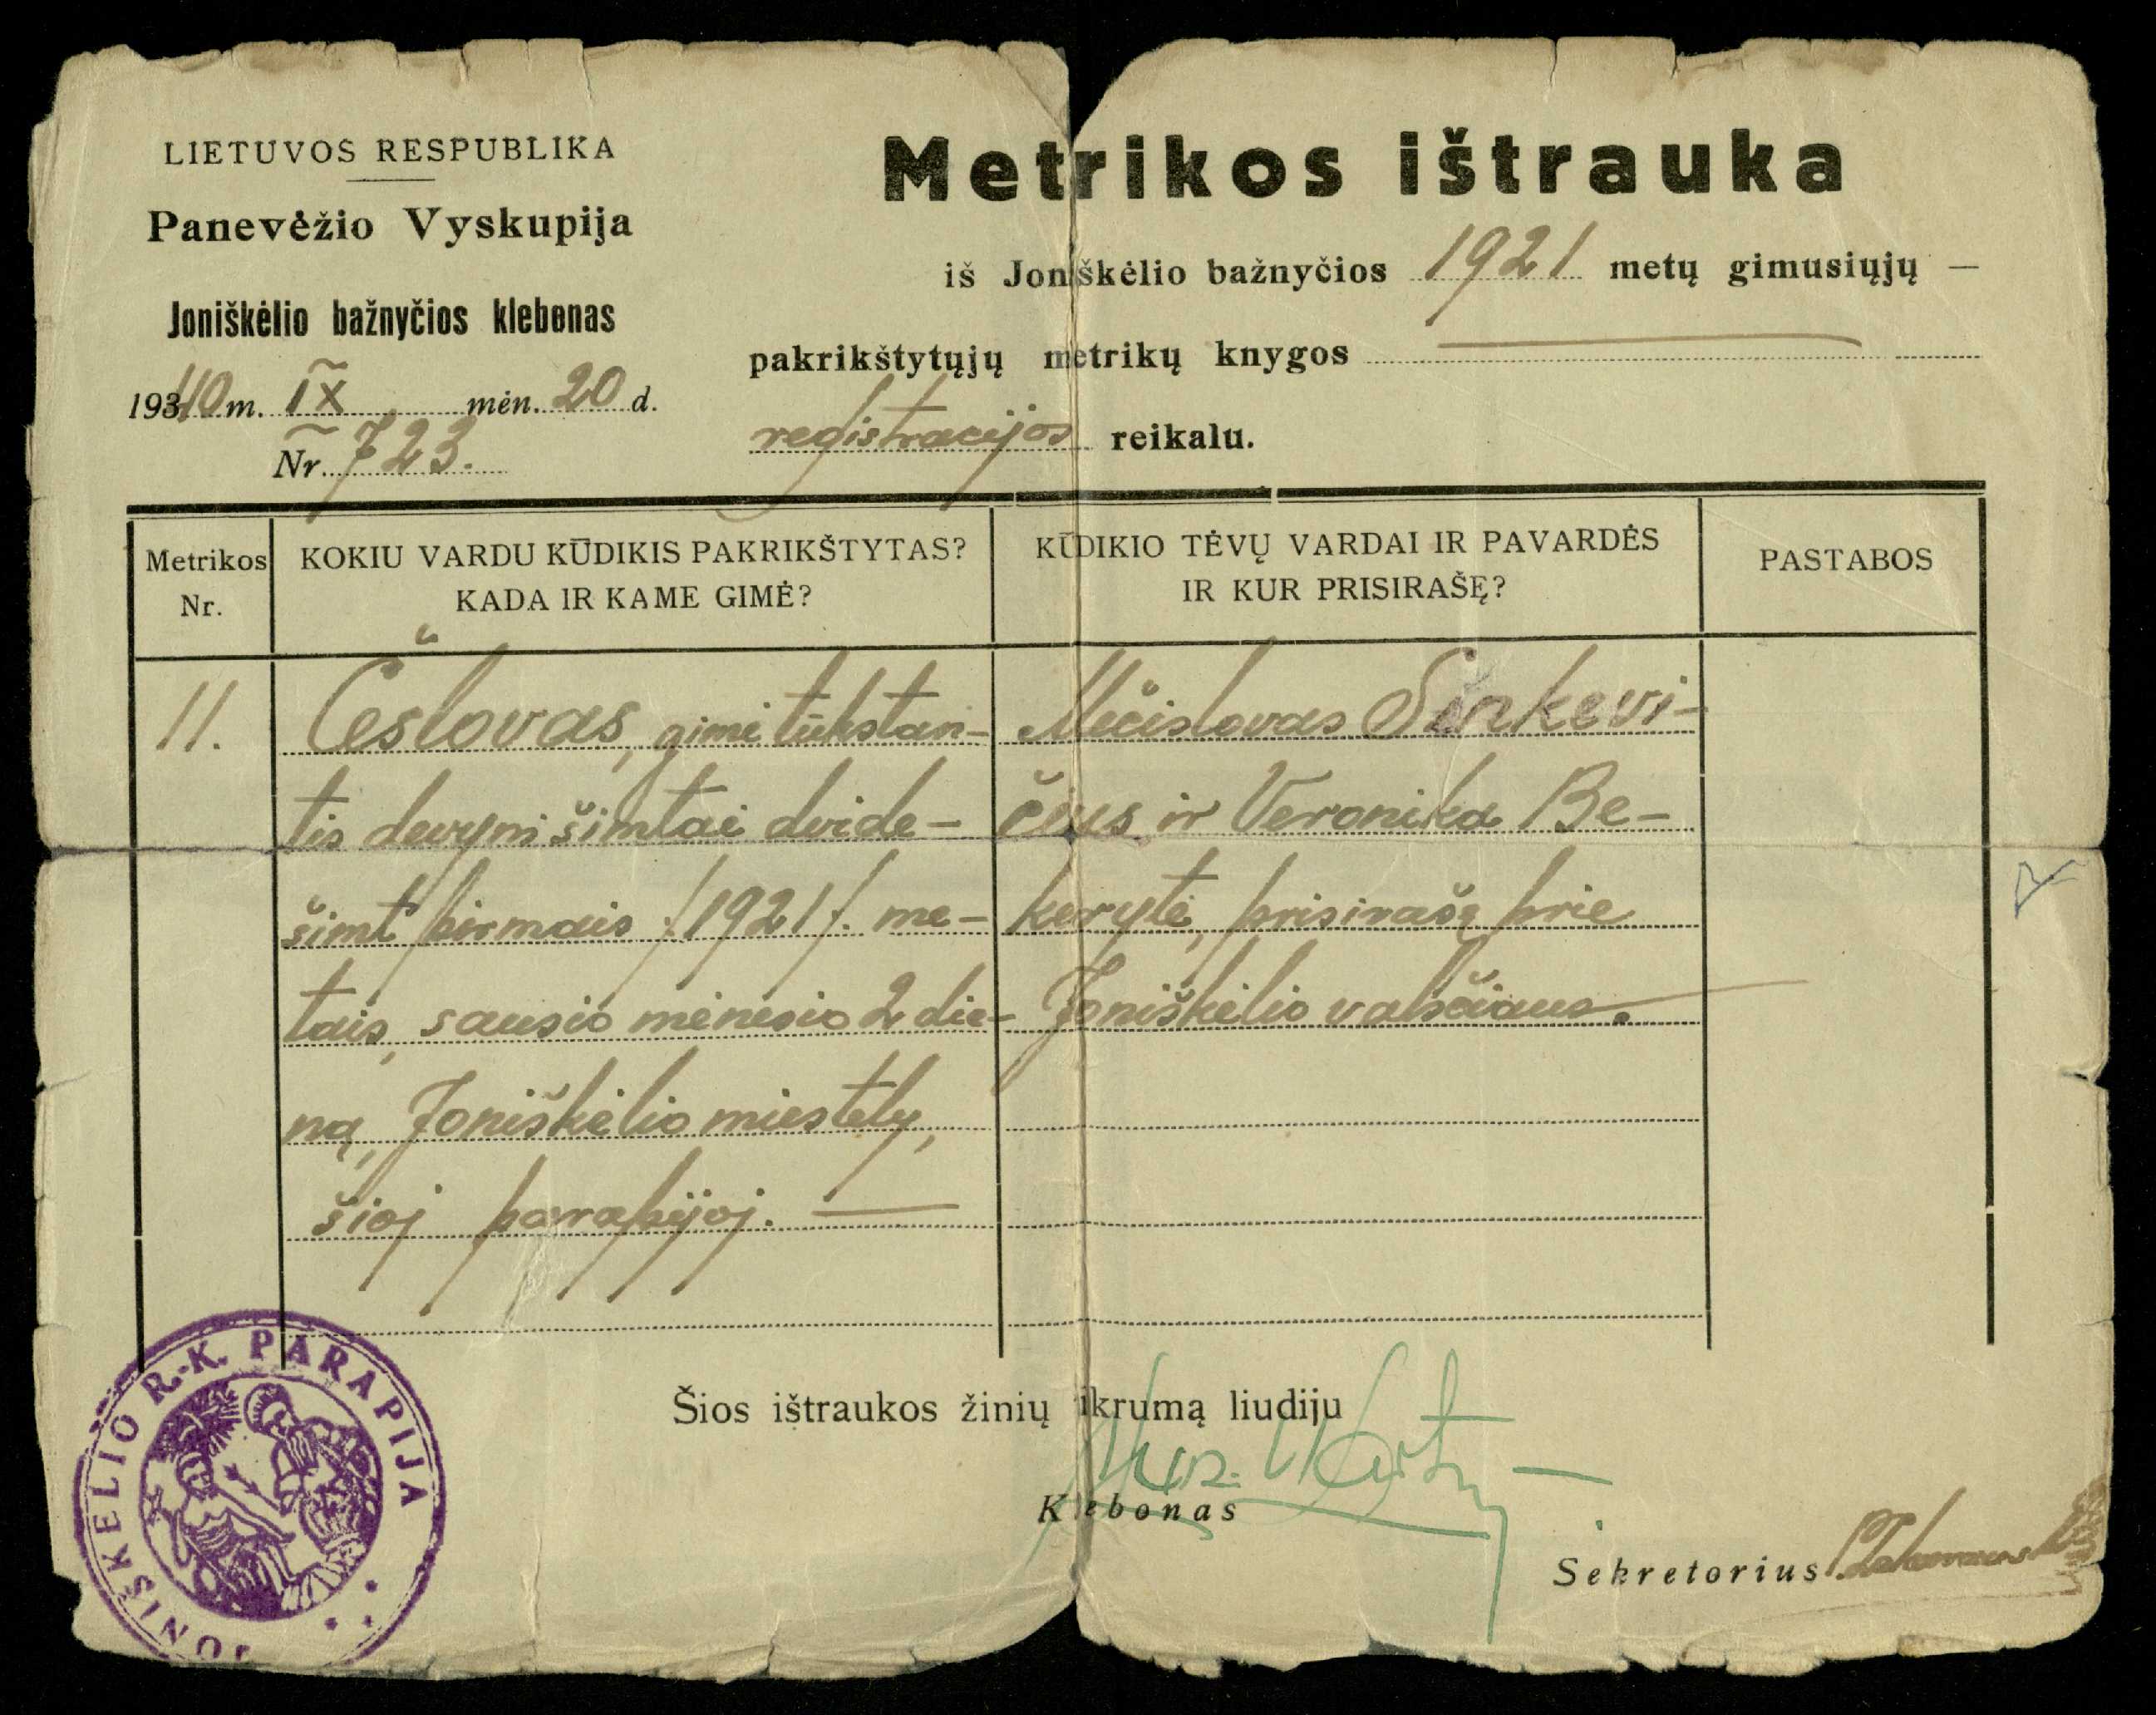 LIETUVOS RESPUBLIKA
Panevėžio Vyskupija
Joniškėlio bažnyčios klebonas
1940 m. IX mėn. 20 d.
Nr. 723.
Metrikos ištrauka
iš Joniškėlio bažnyčios 1921 metų gimusiųjų —
pakrikštytųjų metrikų knygos
registracijos reikalu.
Metrikos
Nr.
KOKIU VARDU KŪDIKIS PAKRIKŠTYTAS?
KADA IR KAME GIMĖ?
KŪDIKIO TĖVŲ VARDAI IR PAVARDĖS
IR KUR PRISIRAŠĘ?
PASTABOS
11.
Česlovas, gimė tūkstan-
tis devyni šimtai dvide-
šimt pirmais /1921/. me-
tais, sausio mėnesio 2 die-
ną, Joniškėlio miestely,
šioj parapijoj. —
Mečislovas Sinkevi-
čius ir Veronika Be-
keryte, prisirašę prie
Joniškėlio valsčiaus.
Šios ištraukos žinių tikrumą liudiju
Klebonas
Sekretorius
JONIŠKELIO R.-K. PARAPIJA